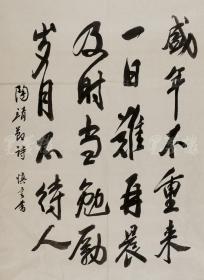 盛年不重来
一日难再晨
及时当勉励
岁月不待人
陶靖节诗 慎之书